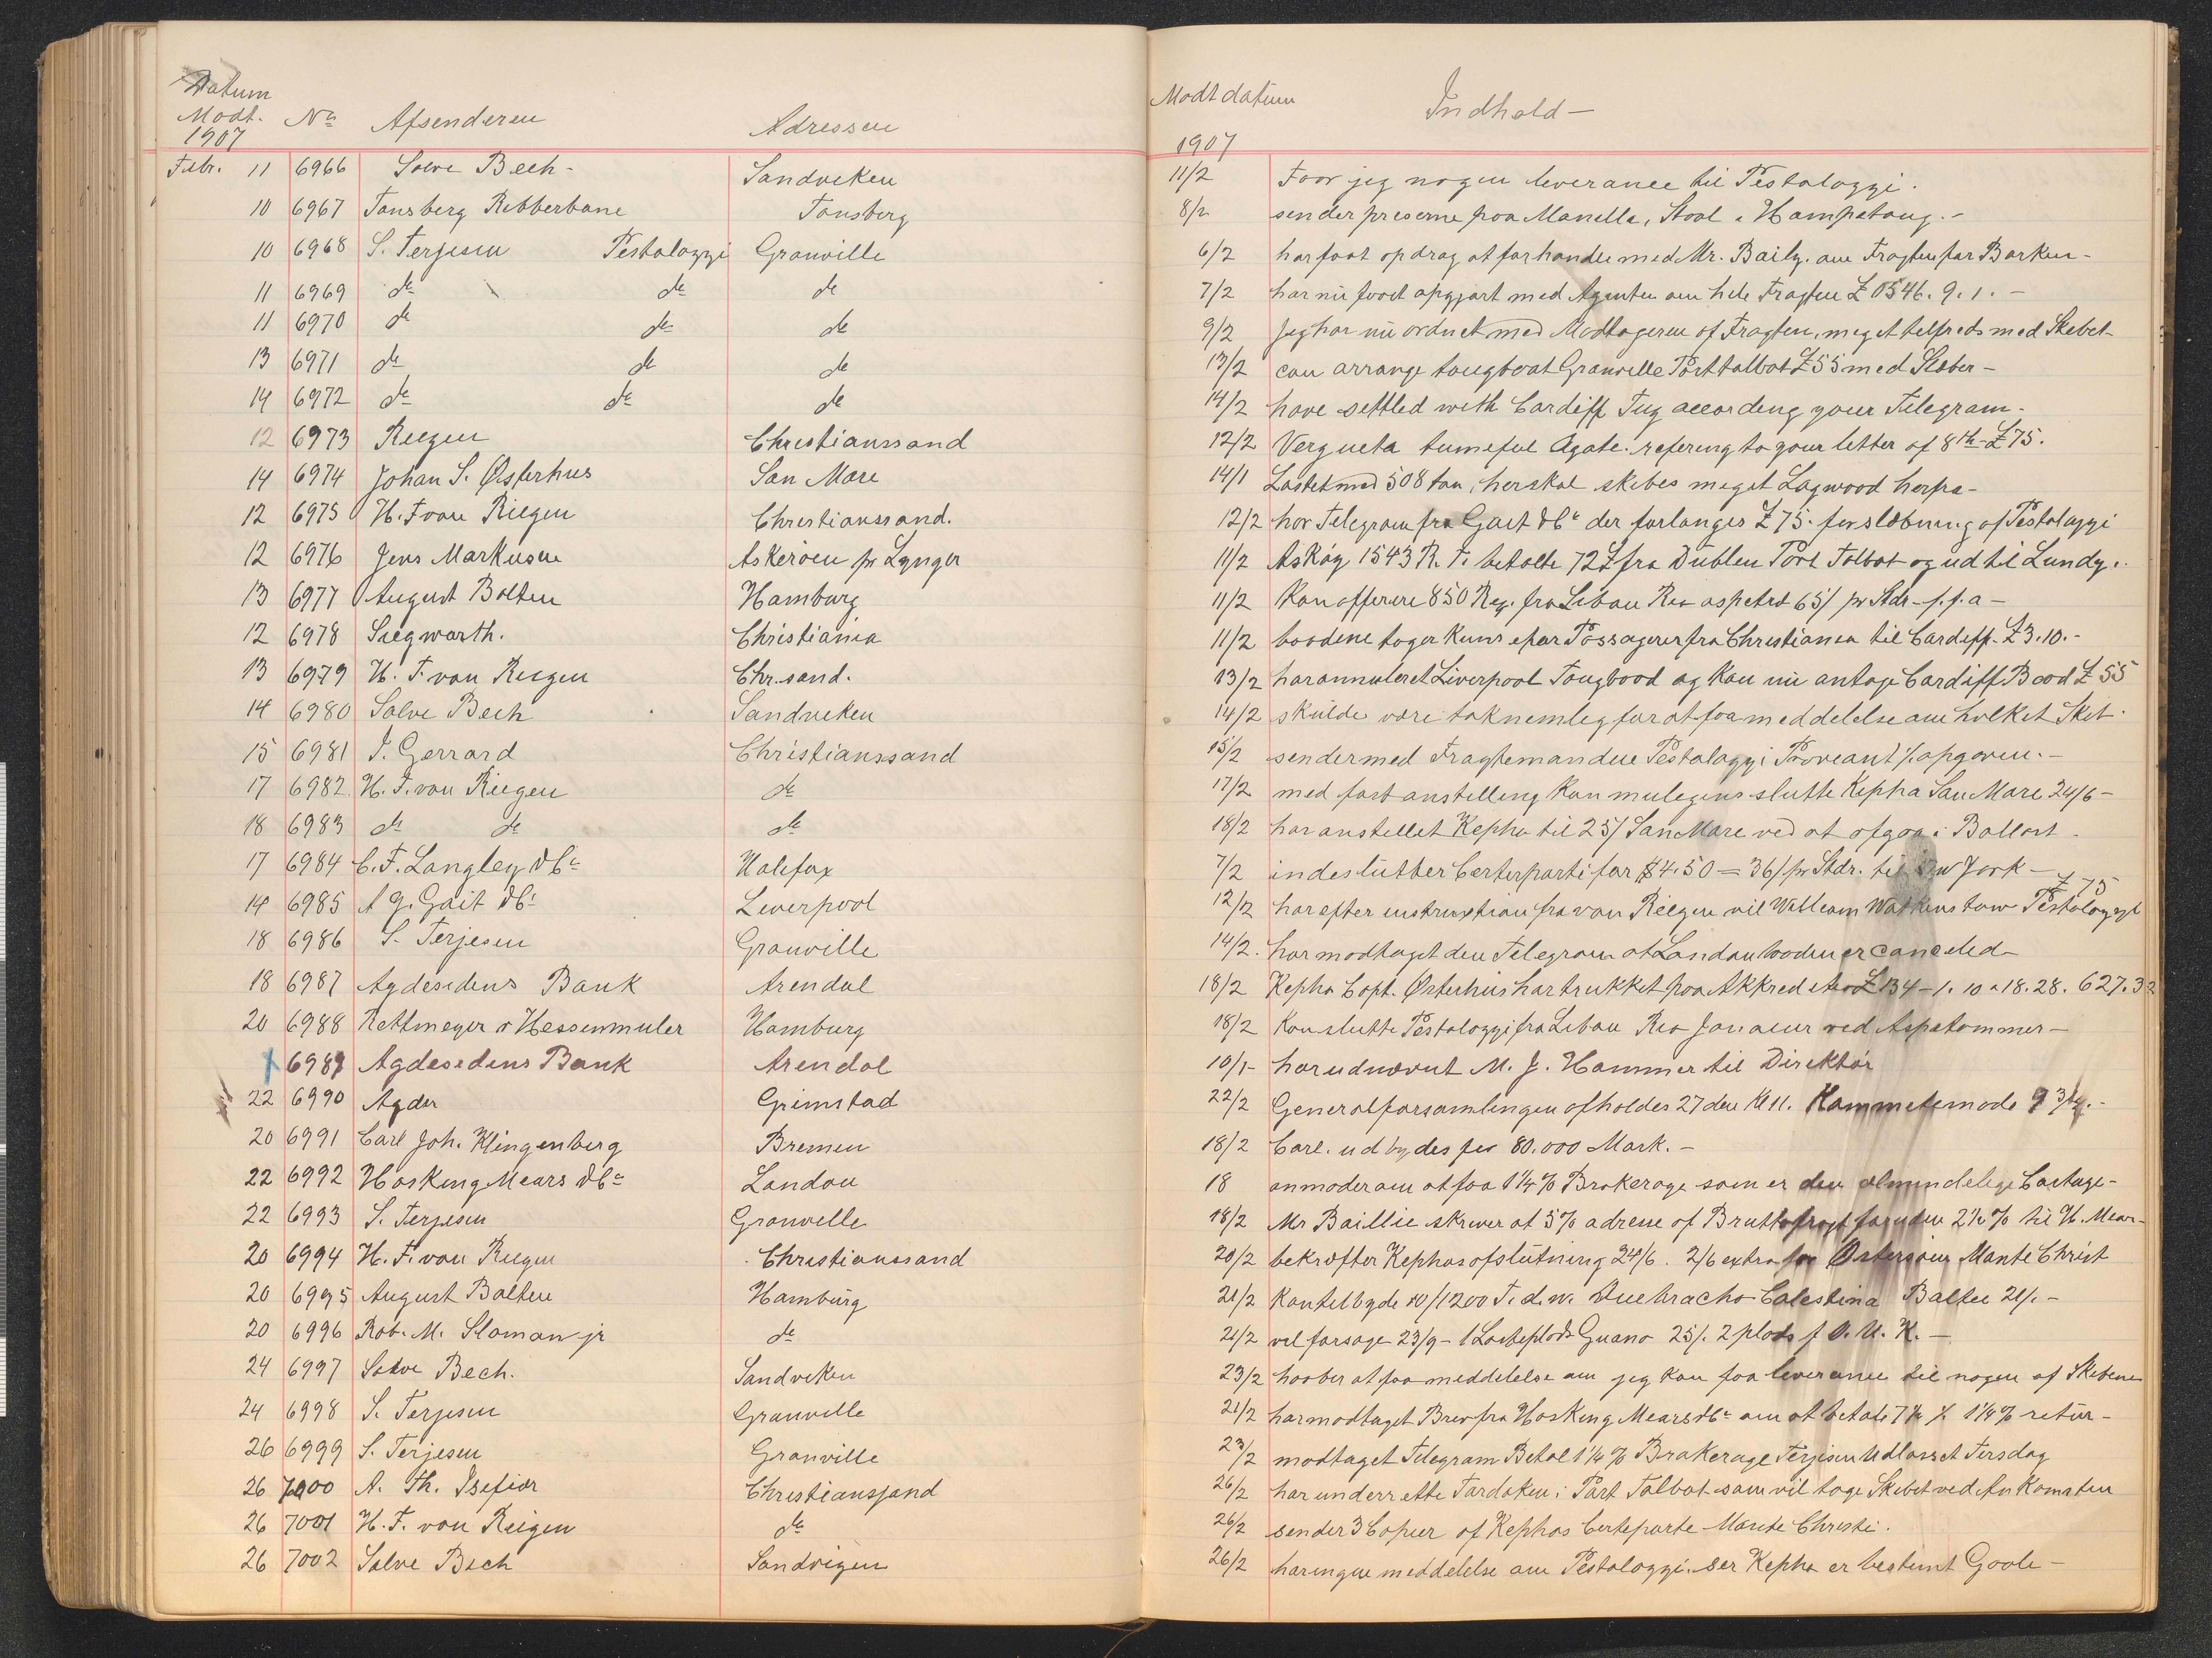 Datum
Modt. No Afsenderen Adressen
1907
Febr. 11 6966 Solve Bech - Sandveken
10 6967 Tønsberg Rebberbane Tønsberg
10 6968 S. Terjesen Pestalozzi Granville
11 6969 do do do
11 6970 do do do
13 6971 do do do
14 6972 do do do
12 6973 Riegen Christianssand
14 6974 Johan S. Østerhus San Mare
12 6975 H. F von Riegen Christianssand.
12 6976 Jens Markusen Askerøen pr Lyngør
13 6977 August Bolten Hamburg
12 6978 Siegwarth. Christiania
13 6979 H. F. von Riegen Chr.sand.
14 6980 Salve Bech Sandveken
15 6981 I. Gerrard Christianssand
17 6982 H. F. von Riegen do
18 6983 do do do
17 6984 C. F. Langley & Co Halifax
14 6985 A G. Gait & Co Liverpool
18 6986 S. Terjesen Granville
18 6987 Agdesidens Bank Arendal
20 6988 Rettmeyer & Hessenmuler Hamburg
x 6989 Agdesidens Bank Arendal
22 6990 Agder Grimstad
20 6991 Carl Joh. Klingenberg Bremen
22 6992 Hosking Mears & Co London
22 6993 S. Terjesen Granville
20 6994 H. F. von Riegen Christianssand
20 6995 August Bolten Hamburg
20 6996 Rob. M. Sloman jr do
24 6997 Salve Bech. Sandveken
24 6998 S. Terjesen Granville
26 6999 S. Terjesen Granville
26 7000 A. Th. Isefiær Christianssand
26 7001 H. F. von Riegen do
26 7002 Salve Bech Sandvigen
Modt datum Indhold -
1907
11/2 Faar jeg nogen leverance til Pestalozzi.
8/2 sender priserne paa Manella, Staal & Hampetaug. -
6/2 har faat opdrag at forhandle med Mr. Baily. om Fragten for Barken -
7/2 har nu faaet opgjort med Agenten om hele Fragten £ 1546. 9. 1. -
9/2 Jeg har nu ordnet med Modtageren af Fragten, meget tilfreds med Skebet
13/2 can arrange tougboat Granville Porttalbot £55 med Slæber -
14/2 have settled with Cardiff Tug according your Telegram -
12/2 Vergueta tumeful Agate. refering to your letter of 8th - £75.
14/1 Lastet med 508 ton, her skal skibes meget Logwood herfra -
12/2 har Telegram fra Gait & Co der forlanges £75. for slæbning af Pestalozzi
11/2 Askøy 1543 R. T. betalte 72 £ fra Dublin Port Talbot og ud til Lundy.
11/2 Kan offerere 850 Reg. fra Libau Rio aspetrd 65/ pr Stdr - f. f. a -
11/2 baadene tager Kuns Passagerer fra Christiania til Cardiff. £3.10. -
13/2 har annuleret Liverpool Tougbood og Kan nu antage Cardiff Baad £55
14/2 skulde være taknemlig for at faa meddelelse om hvelket Sket.
15/2 sender med Fragtemanden Pestalozzi Proveant % opgaven. -
17/2 med fast anstelling Kan mulegens slutte Kepha San Mare 24/6 -
18/2 har anstillet Kepha til 25/ San Mare ved at afgaa i Ballast -
7/2 indeslutter Certerparti for $4.50 = 36/ pr Stdr. til New York -
12/2 har efter instruxtion fra von Riegen vil William Watkins tow Pestalozzi £75
14/2. har modtaget den Telegram at London baaden er canceled -
18/2 Kepha Capt. Østerhus har trukket paa Akkrediteret £134 - 1. 10 a 18.28. 627.32
18/2 Kan slutte Pestalozzi fra Libau Rio Janaeur ved Aspetommer -
10/1 - har udnævnt M. J. Hammer til Direktør
22/2 Generalforsamlingen afholdes 27 den Kl 11. Kammetemøde 9 3/4. -
18/2 Carl. udbydes for 80.000 Mark. -
18 anmoder om at faa 1 1/4 % Brokerage som er den almindelige Cortage -
18/2 Mr Baillie skriver at 5% adresse of Bruttofragt foruden 2 1/2 % til H. Mears -
20/2 bekræfter Kephas afslutning 24/6. 2/6 extra for Østersøen Monte Christ
21/2 Kan tilbyde 10/1200 T. d. w. Quebracho Calestina Balten 21/. -
21/2 vil forsøge 23/9 - 1 Losteplads Guano 25/. 2 plads f O. U. K. -
23/2 haaber at faa meddelelse om jeg Kan faa leverance til nogen af Skebene
21/2 har modtaget Brev fra Hosking Mears & Co om at betale 1 1/4 % retur -
23/2 modtaget Telegram Betal 1 1/4 % Brokerage Terjesen Udlosset Tirsdag
26/2 har underrette Tardoken i Port Talbot som vil tage Skebet ved Ankomsten
26/2 sender 3 Copier af Kephas Certeparte Monte Christi.
26/2 har ingen meddelelse om Pestalozzi. ser Kepha er bestemt Goole -